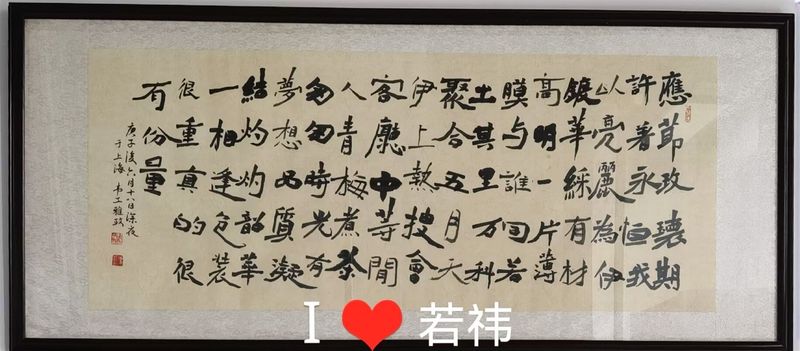 應節期
許著永恒我
以亮麗為伊
鍍華綵有材
高明一片薄
膜与誰同若
土其里万科
聚合五月天
伊上熱搜會
客廳中等閒
人青梅煮茶
匆匆時光有
夢想品質凝
結灼灼韶華
一相逢包裝
很重真的很
有份量
庚子後六月十八日深夜
于上海
I ❤ 若祎